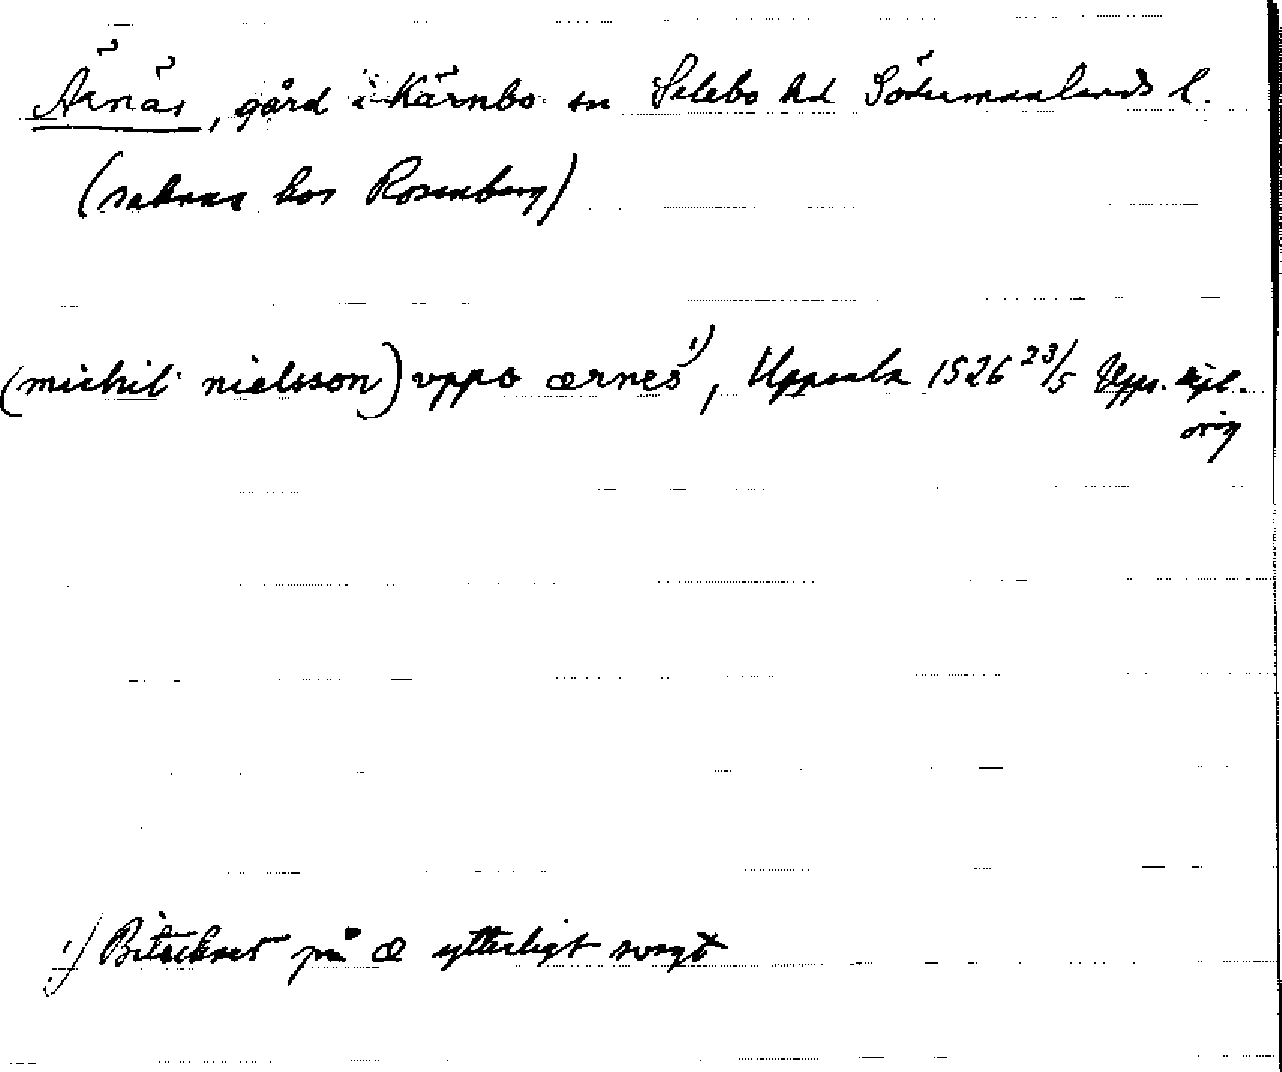 Ärnäs, gård i Kärnbo sn Selebo hd Södermanlands l.
(saknas hos Rosenberg)
(michil nielsson) vppo ærnes 1), Uppsala 1526 23/5 Upps. dipl.
orig
1) Bitecknet på æ ytterligt svagt